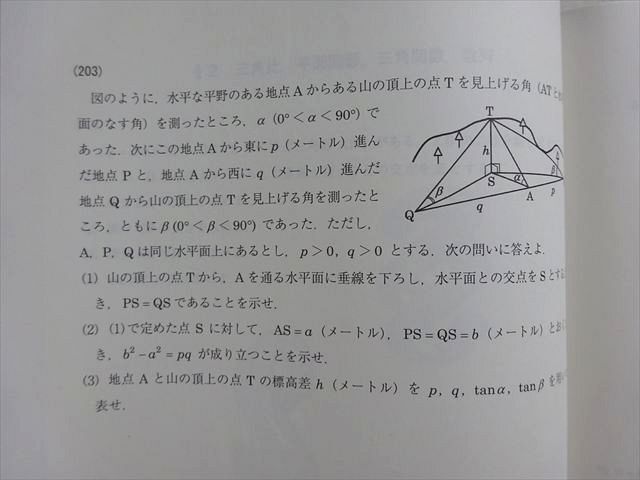 (203)
図のように，水平な平野のある地点Aからある山の頂上の点Tを見上げる角(ATと
面のなす角）を測ったところ，α (0°＜α＜90°) で
あった．次にこの地点Aから東にp（メートル）進ん
だ地点Pと，地点Aから西にq（メートル）進んだ
地点Qから山の頂上の点Tを見上げる角を測ったと
ころ，ともにβ (0°＜β＜90°) であった．ただし，
A，P，Qは同じ水平面上にあるとし，p＞0，q＞0 とする．次の問いに答えよ．
(1) 山の頂上の点Tから，Aを通る水平面に垂線を下ろし，水平面との交点をSとする
き，PS＝QSであることを示せ．
(2) (1)で定めた点Sに対して，AS＝a（メートル），PS＝QS＝b（メートル）とお
き，b²－a²＝pq が成り立つことを示せ．
(3) 地点Aと山の頂上の点Tの標高差h（メートル）を p，q，tanα，tanβ を
表せ．
T
h
S
α
A
β
p
β
Q
q